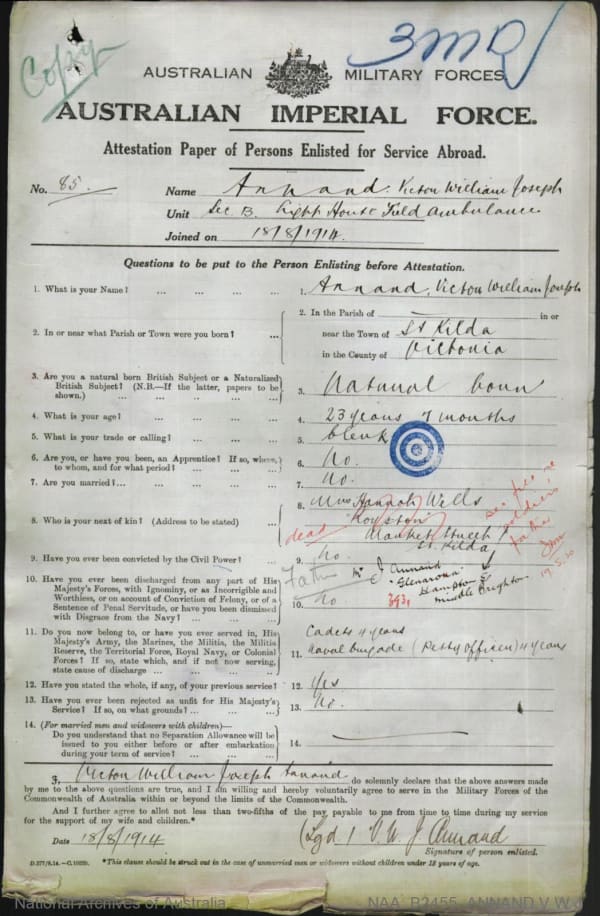 Copy
3 MD
AUSTRALIAN MILITARY FORCES.
AUSTRALIAN IMPERIAL FORCE.
Attestation Paper of Persons Enlisted for Service Abroad.
No. 85. Name Annand. Victor William Joseph
Unit Sec B. Light Horse Field Ambulance
Joined on 18/8/1914.
Questions to be put to the Person Enlisting before Attestation.
1. What is your Name? ... ... ... ... 1. Annand, Victor William Joseph
2. In or near what Parish or Town were you born? ...
2. In the Parish of in or
near the Town of St Kilda
in the County of Victoria
3. Are you a natural born British Subject or a Naturalized
British Subject? (N.B.—If the latter, papers to be
shown.) ... ... ... ... ...
3. Natural born
4. What is your age? ... ... ... 4. 23 years 7 months
5. What is your trade or calling? ... ... 5. Clerk
6. Are you, or have you been, an Apprentice? If so, where,
to whom, and for what period? ... ... ...
6. No.
7. Are you married? ... ... ... ... 7. No.
8. Who is your next of kin? (Address to be stated) ...
8. Mrs Hannah Wells
"Royston"
Market Street
St. Kilda
dead
see file re
soldiers
father
19.5.20
Father J Annand
"Glenarona"
Hampton St
Middle Brighton.
9. Have you ever been convicted by the Civil Power? ... 9. No.
10. Have you ever been discharged from any part of His
Majesty's Forces, with Ignominy, or as Incorrigible and
Worthless, or on account of Conviction of Felony, or of a
Sentence of Penal Servitude, or have you been dismissed
with Disgrace from the Navy? ... ... ...
10. No
11. Do you now belong to, or have you ever served in, His
Majesty's Army, the Marines, the Militia, the Militia
Reserve, the Territorial Force, Royal Navy, or Colonial
Forces? If so, state which, and if not now serving,
state cause of discharge ... ... ... ...
Cadets 4 years
11. Naval Brigade (Petty Officer) 4 years
12. Have you stated the whole, if any, of your previous service? 12. Yes
13. Have you ever been rejected as unfit for His Majesty's
Service? If so, on what grounds? ... ... ...
13. No.
14. (For married men and widowers with children)—
Do you understand that no Separation Allowance will be
issued to you either before or after embarkation
during your term of service? ... ... ...
14.
I, Victor William Joseph Annand do solemnly declare that the above answers made
by me to the above questions are true, and I am willing and hereby voluntarily agree to serve in the Military Forces of the
Commonwealth of Australia within or beyond the limits of the Commonwealth.
And I further agree to allot not less than two-fifths of the pay payable to me from time to time during my service
for the support of my wife and children.*
Date 18/8/1914. (Sgd) V. W. J Annand
Signature of person enlisted.
D.377/8.14.—C.10239. *This clause should be struck out in the case of unmarried men or widowers without children under 18 years of age.
National Archives of Australia NAA: B2455, ANNAND V W J